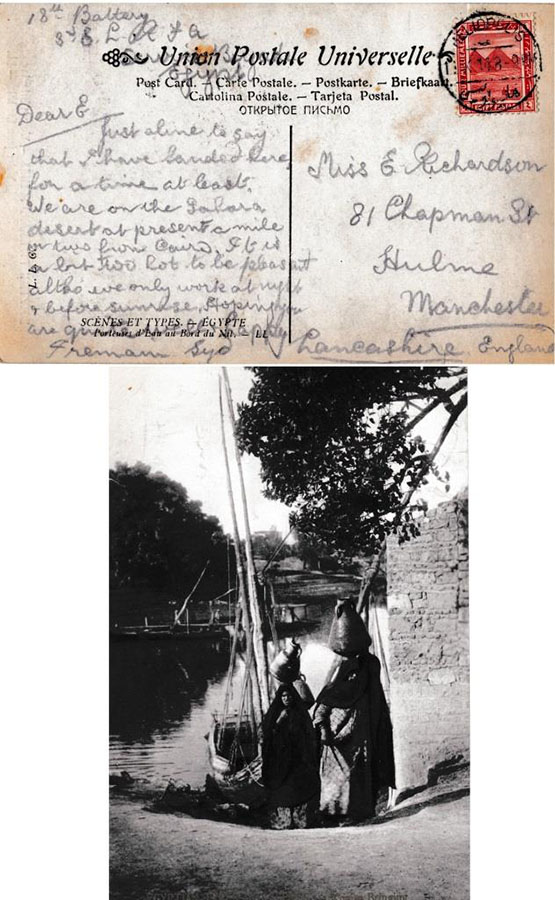 18th Battery
3rd E. L. R F A
Egypt
Union Postale Universelle
Post Card. – Carte Postale. – Postkarte. – Briefkaart.
Cartolina Postale. – Tarjeta Postal.
ОТКРЫТОЕ ПИСЬМО
Dear E
Just a line to say
that I have landed here
for a time at least.
We are on the Sahara
desert at present a mile
or two from Cairo. It is
a bit too hot to be pleasant
altho we only work at night
& before sunrise. Hoping you
are
SCÈNES ET TYPES. – ÉGYPTE
Porteuses d'Eau au Bord du Nil. – LL
Syd
Miss E Richardson
81 Chapman St
Hulme
Manchester
Lancashire England